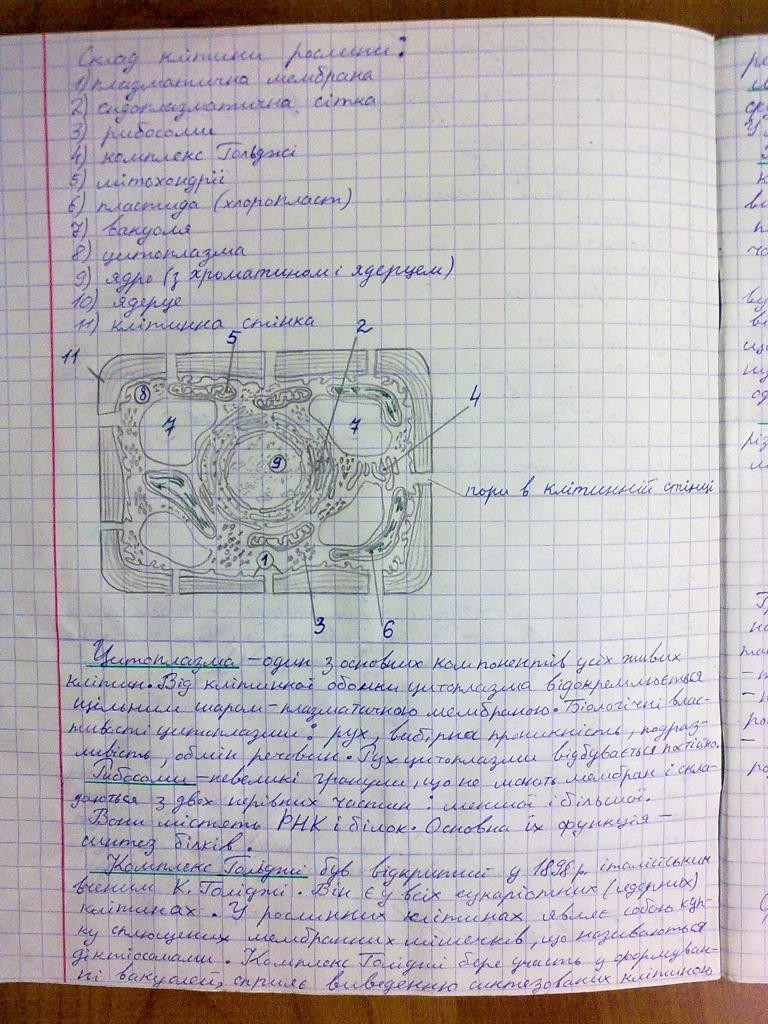 Склад клітини рослини:
1) плазматична мембрана
2) ендоплазматична сітка
3) рибосоми
4) комплекс Гольджі
5) мітохондрії
6) пластида (хлоропласт)
7) вакуоля
8) цитоплазма
9) ядро (з хроматином і ядерцем)
10) ядерце
11) клітинна стінка
11
5
2
8
7
7
4
9
пори в клітинній стінці
1
3
6
Цитоплазма – один з основних компонентів усіх живих
клітин. Від клітинної оболонки цитоплазма відокремлюється
щільним шаром – плазматичною мембраною. Біологічні влас-
тивості цитоплазми: рух, вибірна проникність, подраз-
ливість, обмін речовин. Рух цитоплазми відбувається постійно.
Рибосоми – невеликі гранули, що не мають мембран і скла-
даються з двох нерівних частин: меншої і більшої.
Вони містять РНК і білок. Основна їх функція –
синтез білків.
Комплекс Гольджі був відкритий у 1898 р. італійським
вченим К. Гольджі. Він є у всіх еукаріотних (ядерних)
клітинах. У рослинних клітинах являє собою куп-
ку сплющених мембранних мішечків, що називаються
діктіосомами. Комплекс Гольджі бере участь у формуван-
ні вакуолей, сприяє виведенню синтезованих клітиною